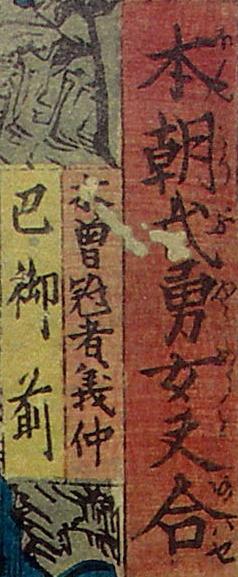 本朝武勇女夫合
木曽冠者義仲
巴御前